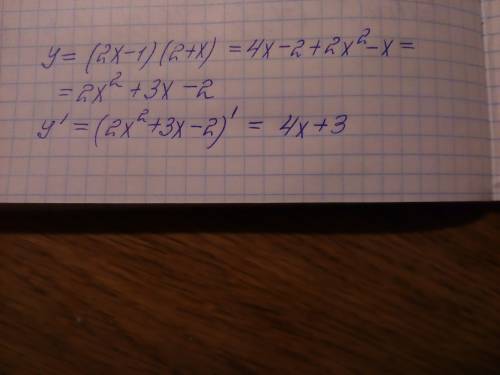 y = (2x-1)(2+x) = 4x-2+2x²-x =
= 2x²+3x-2
y' = (2x²+3x-2)' = 4x+3